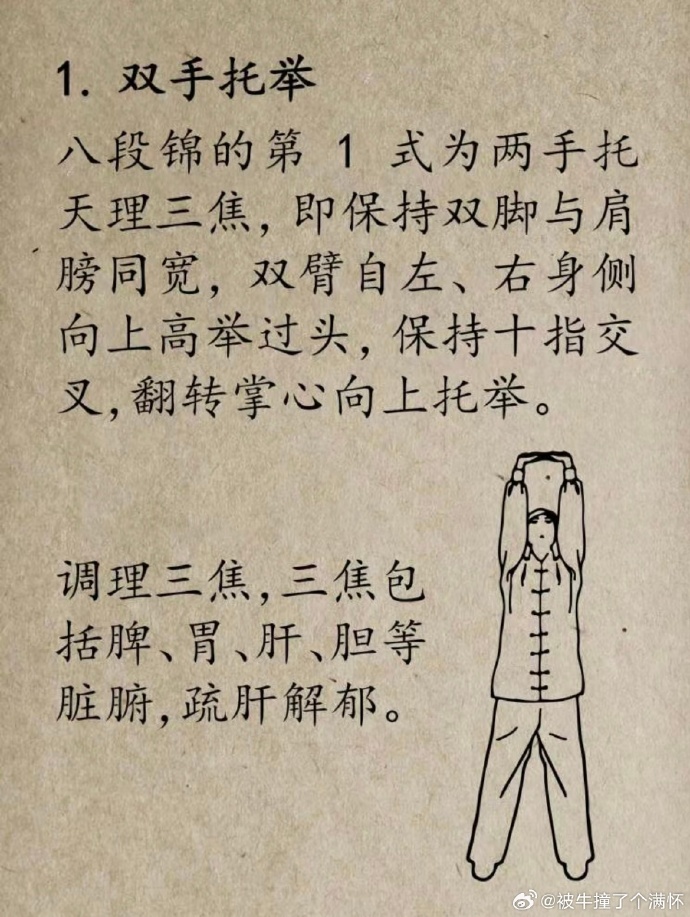 1. 双手托举
八段锦的第 1 式为两手托
天理三焦，即保持双脚与肩
膀同宽，双臂自左、右身侧
向上高举过头，保持十指交
叉，翻转掌心向上托举。
调理三焦，三焦包
括脾、胃、肝、胆等
脏腑，疏肝解郁。
@被牛撞了个满怀